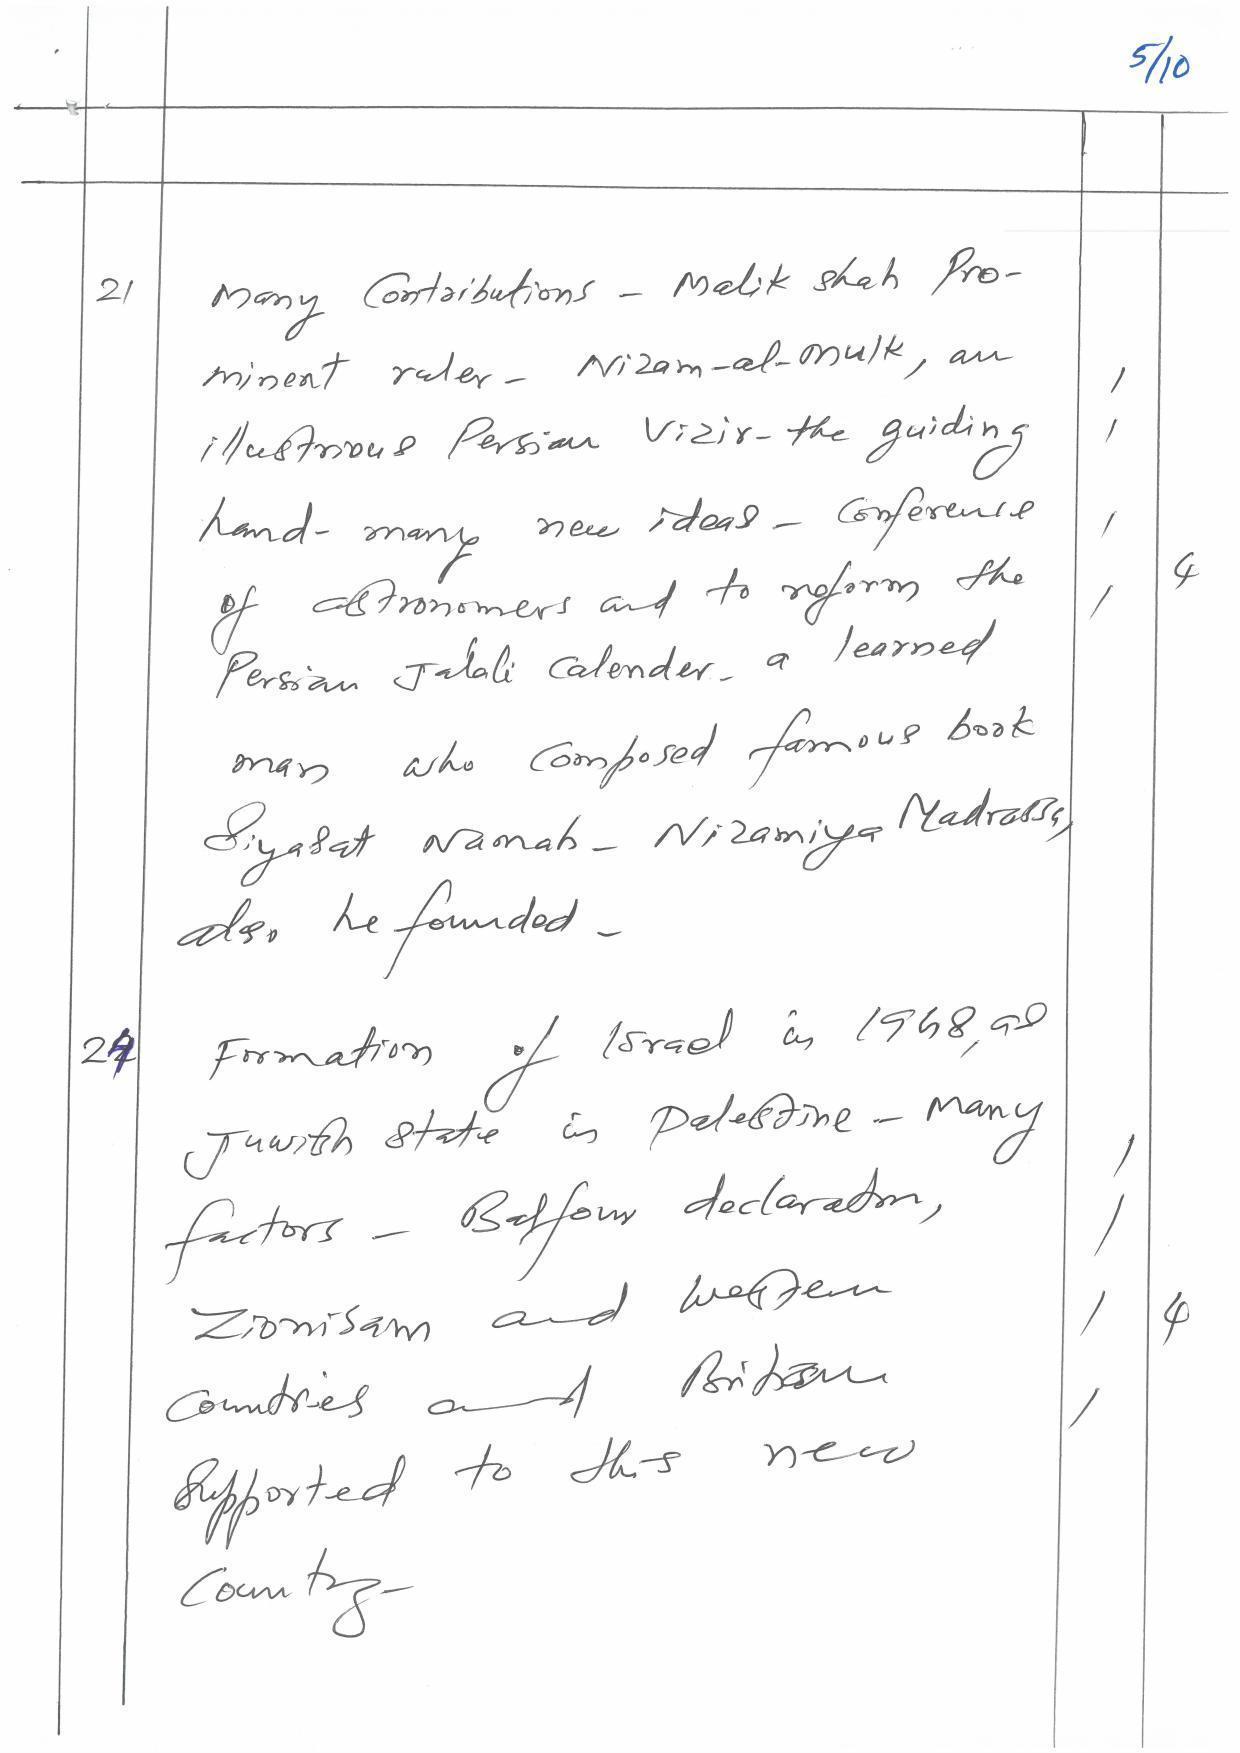 5/10
21 Many Contributions - Malik shah Pro-
minent ruler - Nizam-al-mulk, an
illustrious Persian Vizir - the guiding
hand - many new ideas - Conference
of astronomers and to reform the
Persian Jalali Calender - a learned
man who composed famous book
Siyasat Namah - Nizamiya Madrassa,
also he founded -
1
1
1
1
4
24 Formation of Israel in 1948, as
Juwish state in Palestine - Many
factors - Balfour declaration,
Zionisam and Western
Countries and Britain
Supported to this new
Country -
1
1
1
1
4